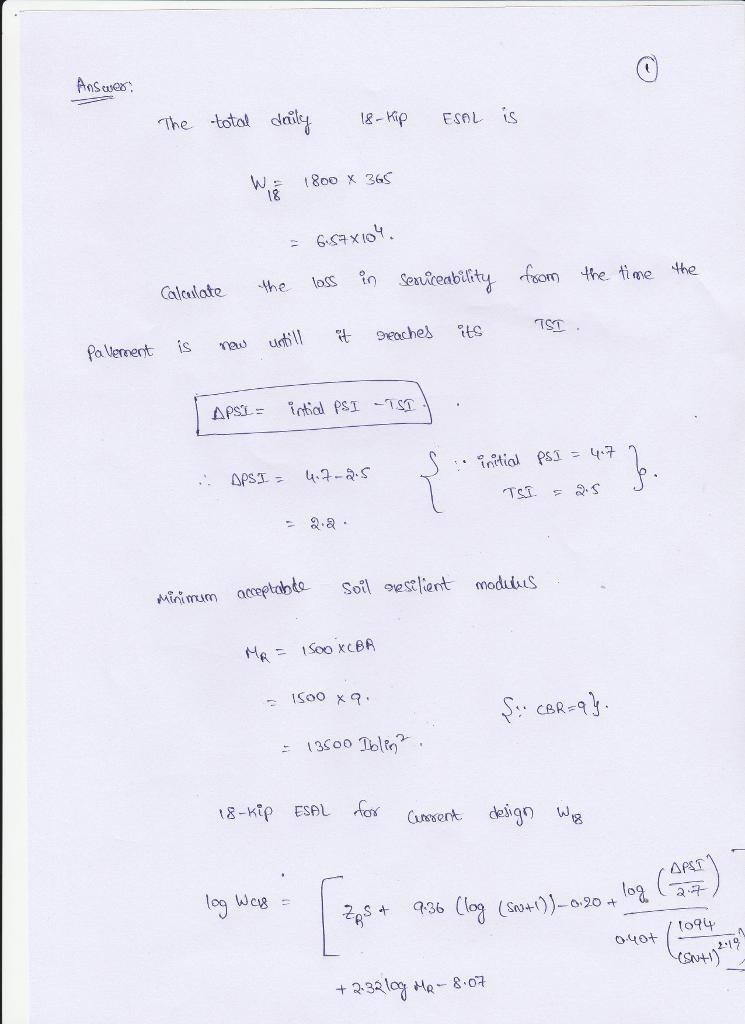 1
Answer:
The total daily 18-Kip ESAL is
W18 = 1800 x 365
= 6.57x10^4.
Calculate the loss in serviceability from the time the
Pavement is new untill it reaches its TSI.
ΔPSI = intial PSI - TSI.
∴ ΔPSI = 4.7-2.5 { ∵ initial PSI = 4.7
TSI = 2.5 }.
= 2.2.
Minimum acceptable Soil resilient modulus
MR = 1500 x CBR
= 1500 x 9. {∵ CBR=9}.
= 13500 Ib/in^2.
18-Kip ESAL for Current design W18
log W18 = [ ZRS + 9.36 (log (SN+1)) - 0.20 + log (ΔPSI / 2.7) / 0.40+ (1094 / (SN+1)^2.19) ]
+ 2.32 log MR - 8.07